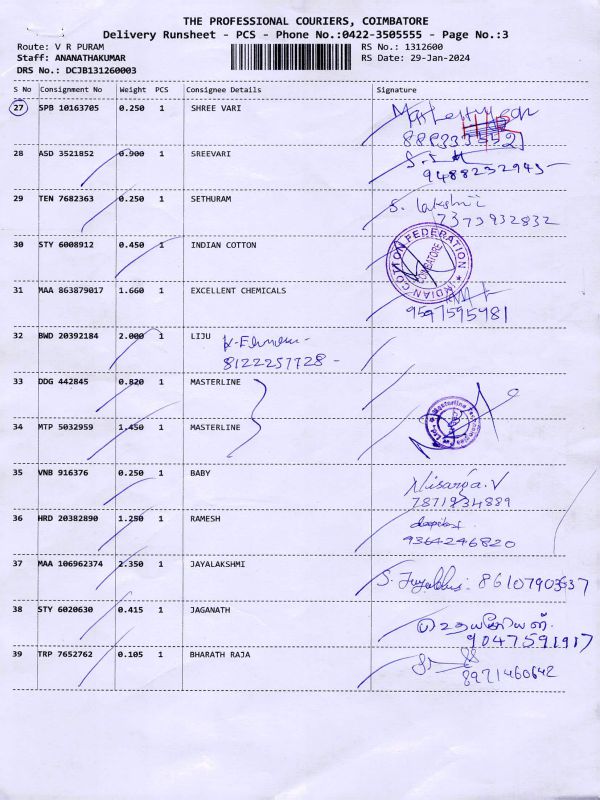 THE PROFESSIONAL COURIERS, COIMBATORE
Delivery Runsheet - PCS - Phone No.:0422-3505555 - Page No.:3
Route: V R PURAM
RS No.: 1312600
Staff: ANANATHAKUMAR
RS Date: 29-Jan-2024
DRS No.: DCJB131260003
S No Consignment No Weight PCS Consignee Details Signature
27 SPB 10163705 0.250 1 SHREE VARI
28 ASD 3521852 0.900 1 SREEVARI
9488232945
29 TEN 7682363 0.250 1 SETHURAM S. Lakshmi
7373932832
30 STY 6008912 0.450 1 INDIAN COTTON
INDIAN COTTON FEDERATION
COIMBATORE
31 MAA 863879017 1.660 1 EXCELLENT CHEMICALS
9597595981
32 BWD 20392184 2.000 1 LIJU
8122257728
33 DDG 442845 0.820 1 MASTERLINE
34 MTP 5032959 1.450 1 MASTERLINE
35 VNB 916376 0.250 1 BABY Nisarga.V
7871834889
36 HRD 20382890 1.250 1 RAMESH
9364246820
37 MAA 106962374 2.350 1 JAYALAKSHMI
38 STY 6020630 0.415 1 JAGANATH
9047591917
39 TRP 7652762 0.105 1 BHARATH RAJA
8971460642